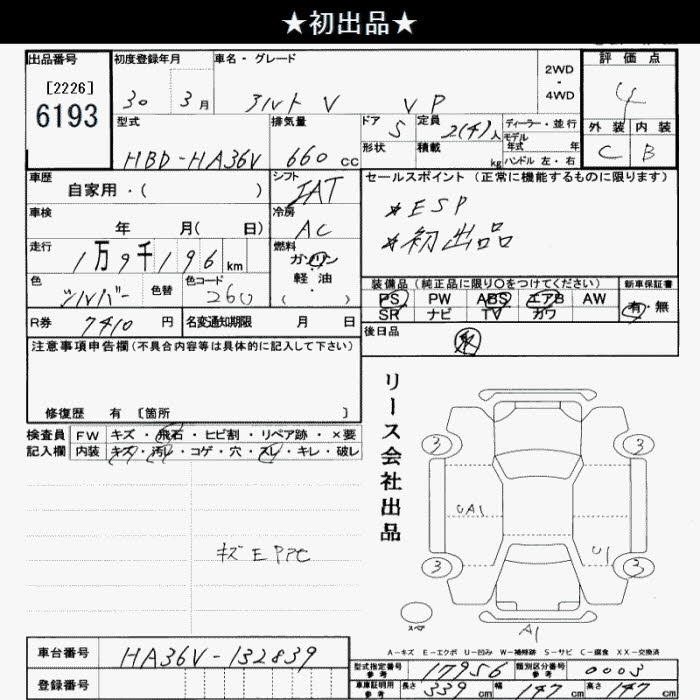 ★初出品★
出品番号 初度登録年月 車名・グレード 2WD・4WD 評価点
[2226] 6193 30 3月 アルト V VP 4
型式 排気量 ドア 定員 ディーラー・並行 外装 内装
HBD-HA36V 660 cc 5 2(4)人 モデル年式 年 C B
形状 積載 kg ハンドル 左・右
車歴 自家用・( ) シフト IAT セールスポイント (正常に機能するものに限ります)
車検 年 月( 日) 冷房 AC ※ESP
走行 1万9千196km 燃料 ガソリン・軽油( ) ※初出品
色 シルバー 色替 色コード 260 装備品 (純正品に限り○をつけてください) 新車保証書
PS PW ABS エアB AW 有・無
SR ナビ TV カワ
R券 7410 円 名変通知期限 月 日 後日品
注意事項申告欄(不具合内容等は具体的に記入して下さい)
修復歴 有 [箇所 ]
リース会社出品
検査員 FW キズ・飛石・ヒビ割・リペア跡・×要
記入欄 内装 キズ・汚レ・コゲ・穴・スレ・キレ・破レ
3 3
UA1
U1
キズ E
3 3
スペア
A1
A-キズ E-エクボ U-凹み W-補修跡 S-サビ C-腐食 XX-交換済
車台番号 HA36V-132839
型式指定番号 参考 17956 類別区分番号 参考 0003
登録番号
車庫証明用 参考 長さ 339 cm 幅 147 cm 高さ 147 cm